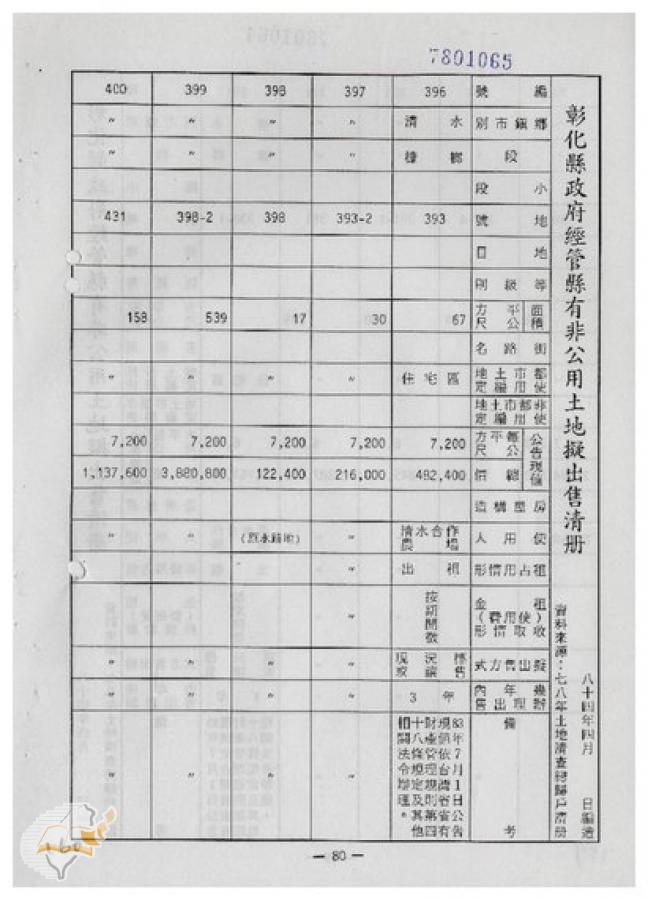 7801065
彰化縣政府經管縣有非公用土地擬出售清册
資料來源：七八年土地清查總歸戶清册
八十四年四月　　日編造
編號 396 397 398 399 400
鄉鎮市別 清水 〃 〃 〃 〃
段 〃 〃 〃 〃
小段
地號 393 393-2 398 398-2 431
地目
等級則
面積 平方公尺 67 30 17 539 158
街路名
都市土地使用編定 住宅區 〃 〃 〃 〃
非都市土地使用編定
公告現值 每平方公尺 7,200 7,200 7,200 7,200 7,200
總價 482,400 216,000 122,400 3,880,800 1,137,600
房屋構造
使用人 清水合作農場 〃 (原水路地) 〃 〃
租占用情形 出租 〃 〃 〃 〃
租金(使用費)收取情形 〃
擬出售方式 〃 〃 〃 〃
幾年內辦理出售 3年 〃 〃 〃 〃
備考 〃 〃 〃 〃
83年7月1日公告
160
— 80 —